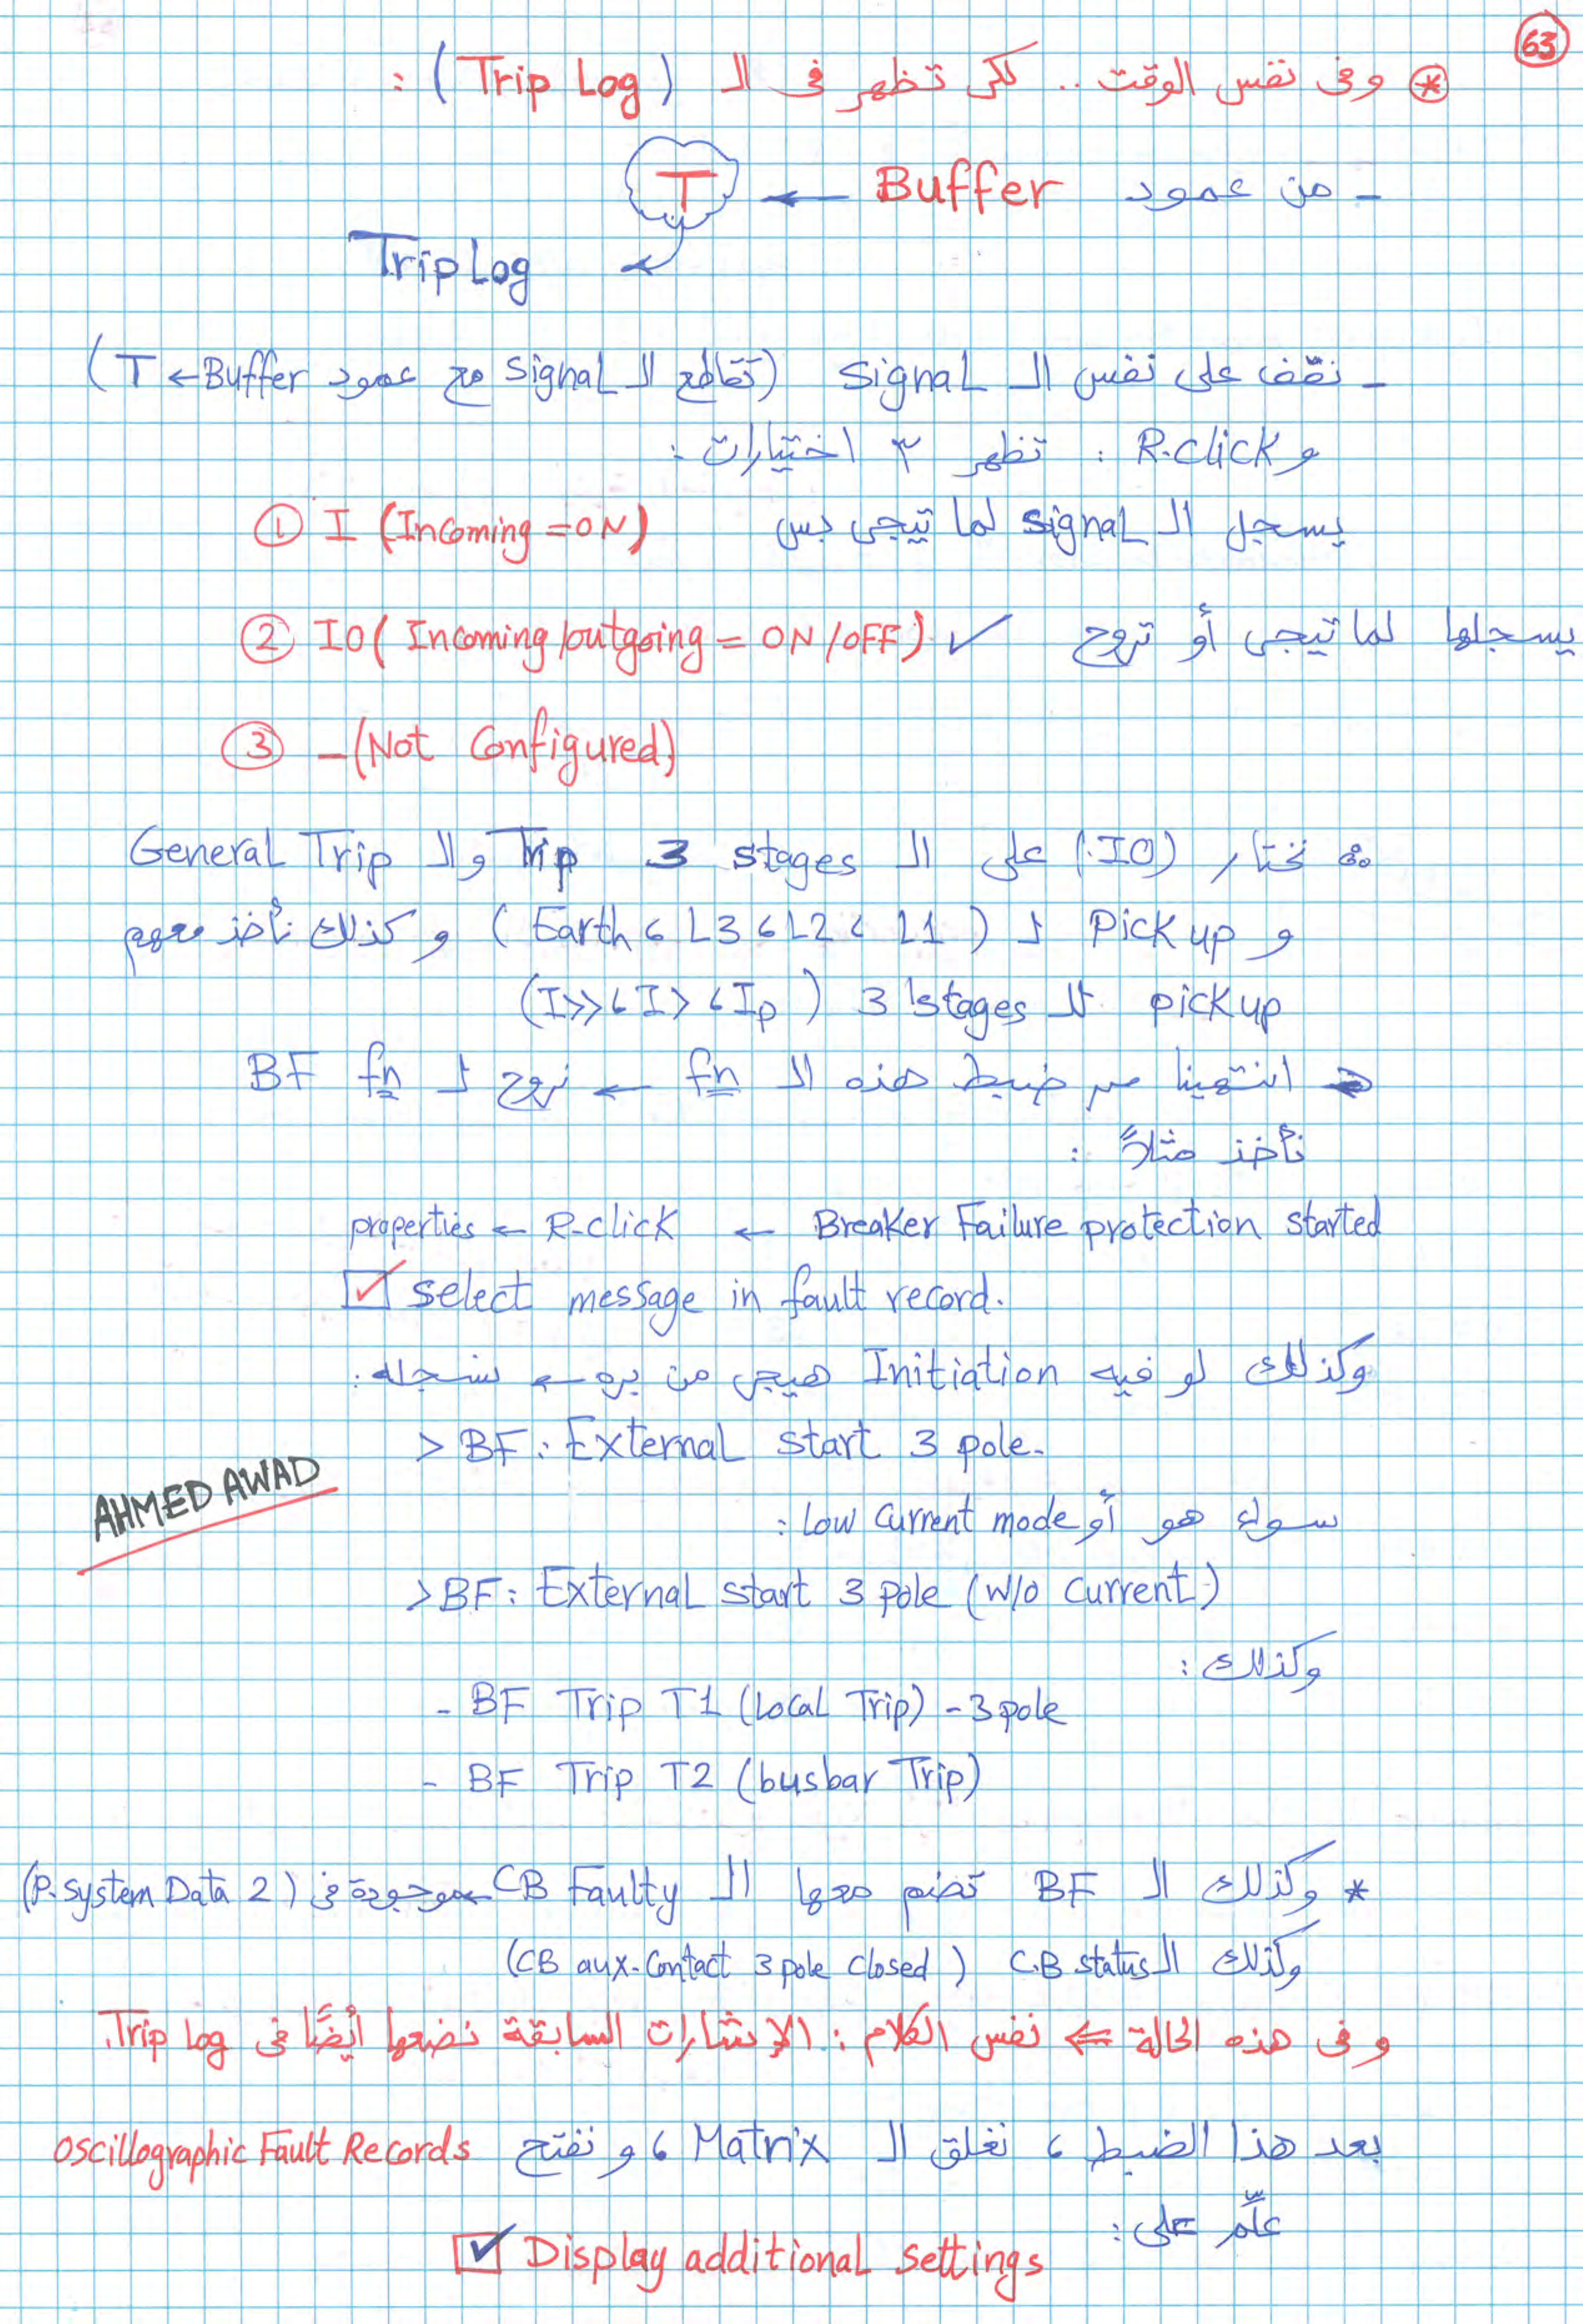 63
* وفى نفس الوقت .. لكى تظهر فى الـ (Trip Log) :
- من عمود Buffer ← T
Trip Log
- نقف على نفس الـ signal (تقاطع الـ signal مع عمود Buffer ← T)
و R.click : تظهر ٣ اختيارات :
① I (Incoming = ON) يسجل الـ signal لما تيجى بس
② IO (Incoming/outgoing = ON/OFF) ✓ يسجلها لما تيجى أو تروح
③ - (Not Configured)
∴ نختار (IO) على الـ 3 stages Trip والـ General Trip
و Pick up لـ (L1 ، L2 ، L3 ، Earth) و كذلك نأخذ معهم
pick up للـ 3 stages (Ip ، I> ، I>>)
انتهينا من ضبط هذه الـ fn ← نروح لـ BF fn
نأخذ مثلاً :
Breaker Failure protection started ← R-click ← properties
☑ select message in fault record.
وكذلك لو فيه Initiation هيجى من بره ← نسجله :
> BF : External start 3 pole.
AHMED AWAD
سواء هو أو Low current mode :
> BF : External start 3 pole (w/o current)
وكذلك :
- BF Trip T1 (local Trip) - 3 pole
- BF Trip T2 (busbar Trip)
* وكذلك الـ BF نضم معها الـ CB Faulty موجودة فى (P. system Data 2)
وكذلك الـ C.B status (CB aux-Contact 3 pole closed)
و فى هذه الحالة ⇐ نفس الكلام : الإشارات السابقة نضعها أيضًا فى Trip Log.
بعد هذا الضبط ، نغلق الـ Matrix ، و نفتح Oscillographic Fault Records
علّم على :
☑ Display additional settings